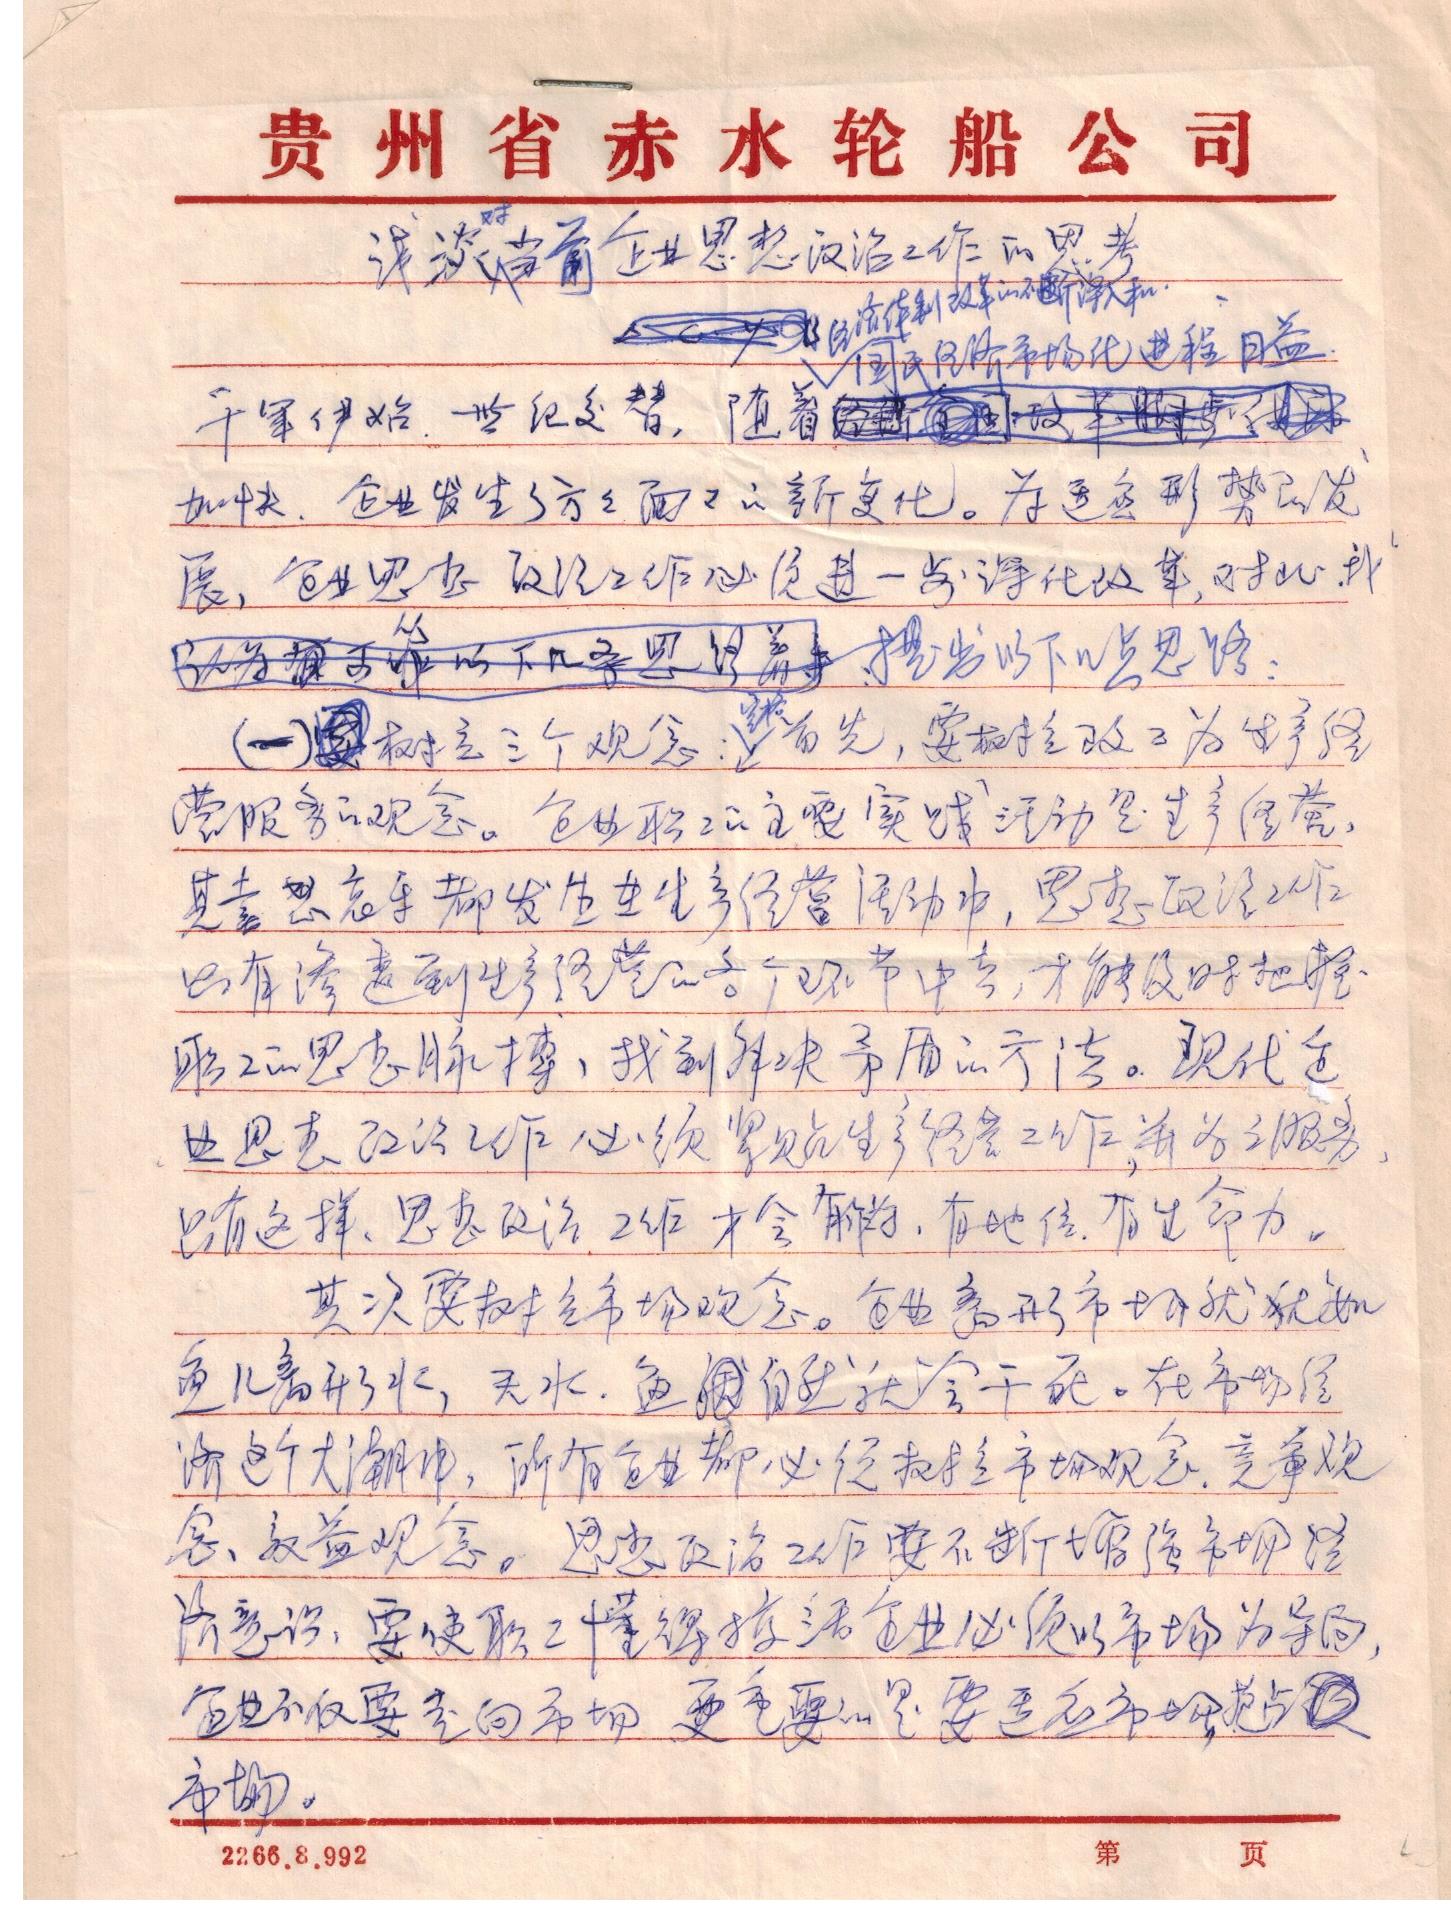 贵州省赤水轮船公司
浅谈对当前企业思想政治工作的思考
经济体制改革的不断深入和
国民经济市场化进程日益
千年伊始、世纪交替，随着
加快、企业发生了方方面面的新变化。为适应形势的发
展，企业思想政治工作必须进一步深化改革，对此，我
认为 可 以下几条思路着手 提出以下几点思路：
(一)要树立三个观念：首先，要树立政工为生产经
营服务的观念。企业职工的主要实践活动是生产经营，
其喜怒哀乐都发生在生产经营活动中，思想政治工作
只有渗透到生产经营的各个环节中去，才能及时把握
职工的思想脉搏，找到解决矛盾的方法。现代企
业思想政治工作必须紧贴生产经营工作，并为之服务，
只有这样、思想政治工作才会有作为、有地位、有生命力。
其次要树立市场观念。企业离开市场就犹如
鱼儿离开水，无水、鱼自然就会干死。在市场经
济这个大潮中，所有企业都必须树立市场观念、竞争观
念、效益观念。思想政治工作要不断增强市场经
济意识，要使职工懂得搞活企业必须以市场为导向，
企业不仅要走向市场 更重要的是要适应市场，抢占
市场。
2266.8.992 第 页